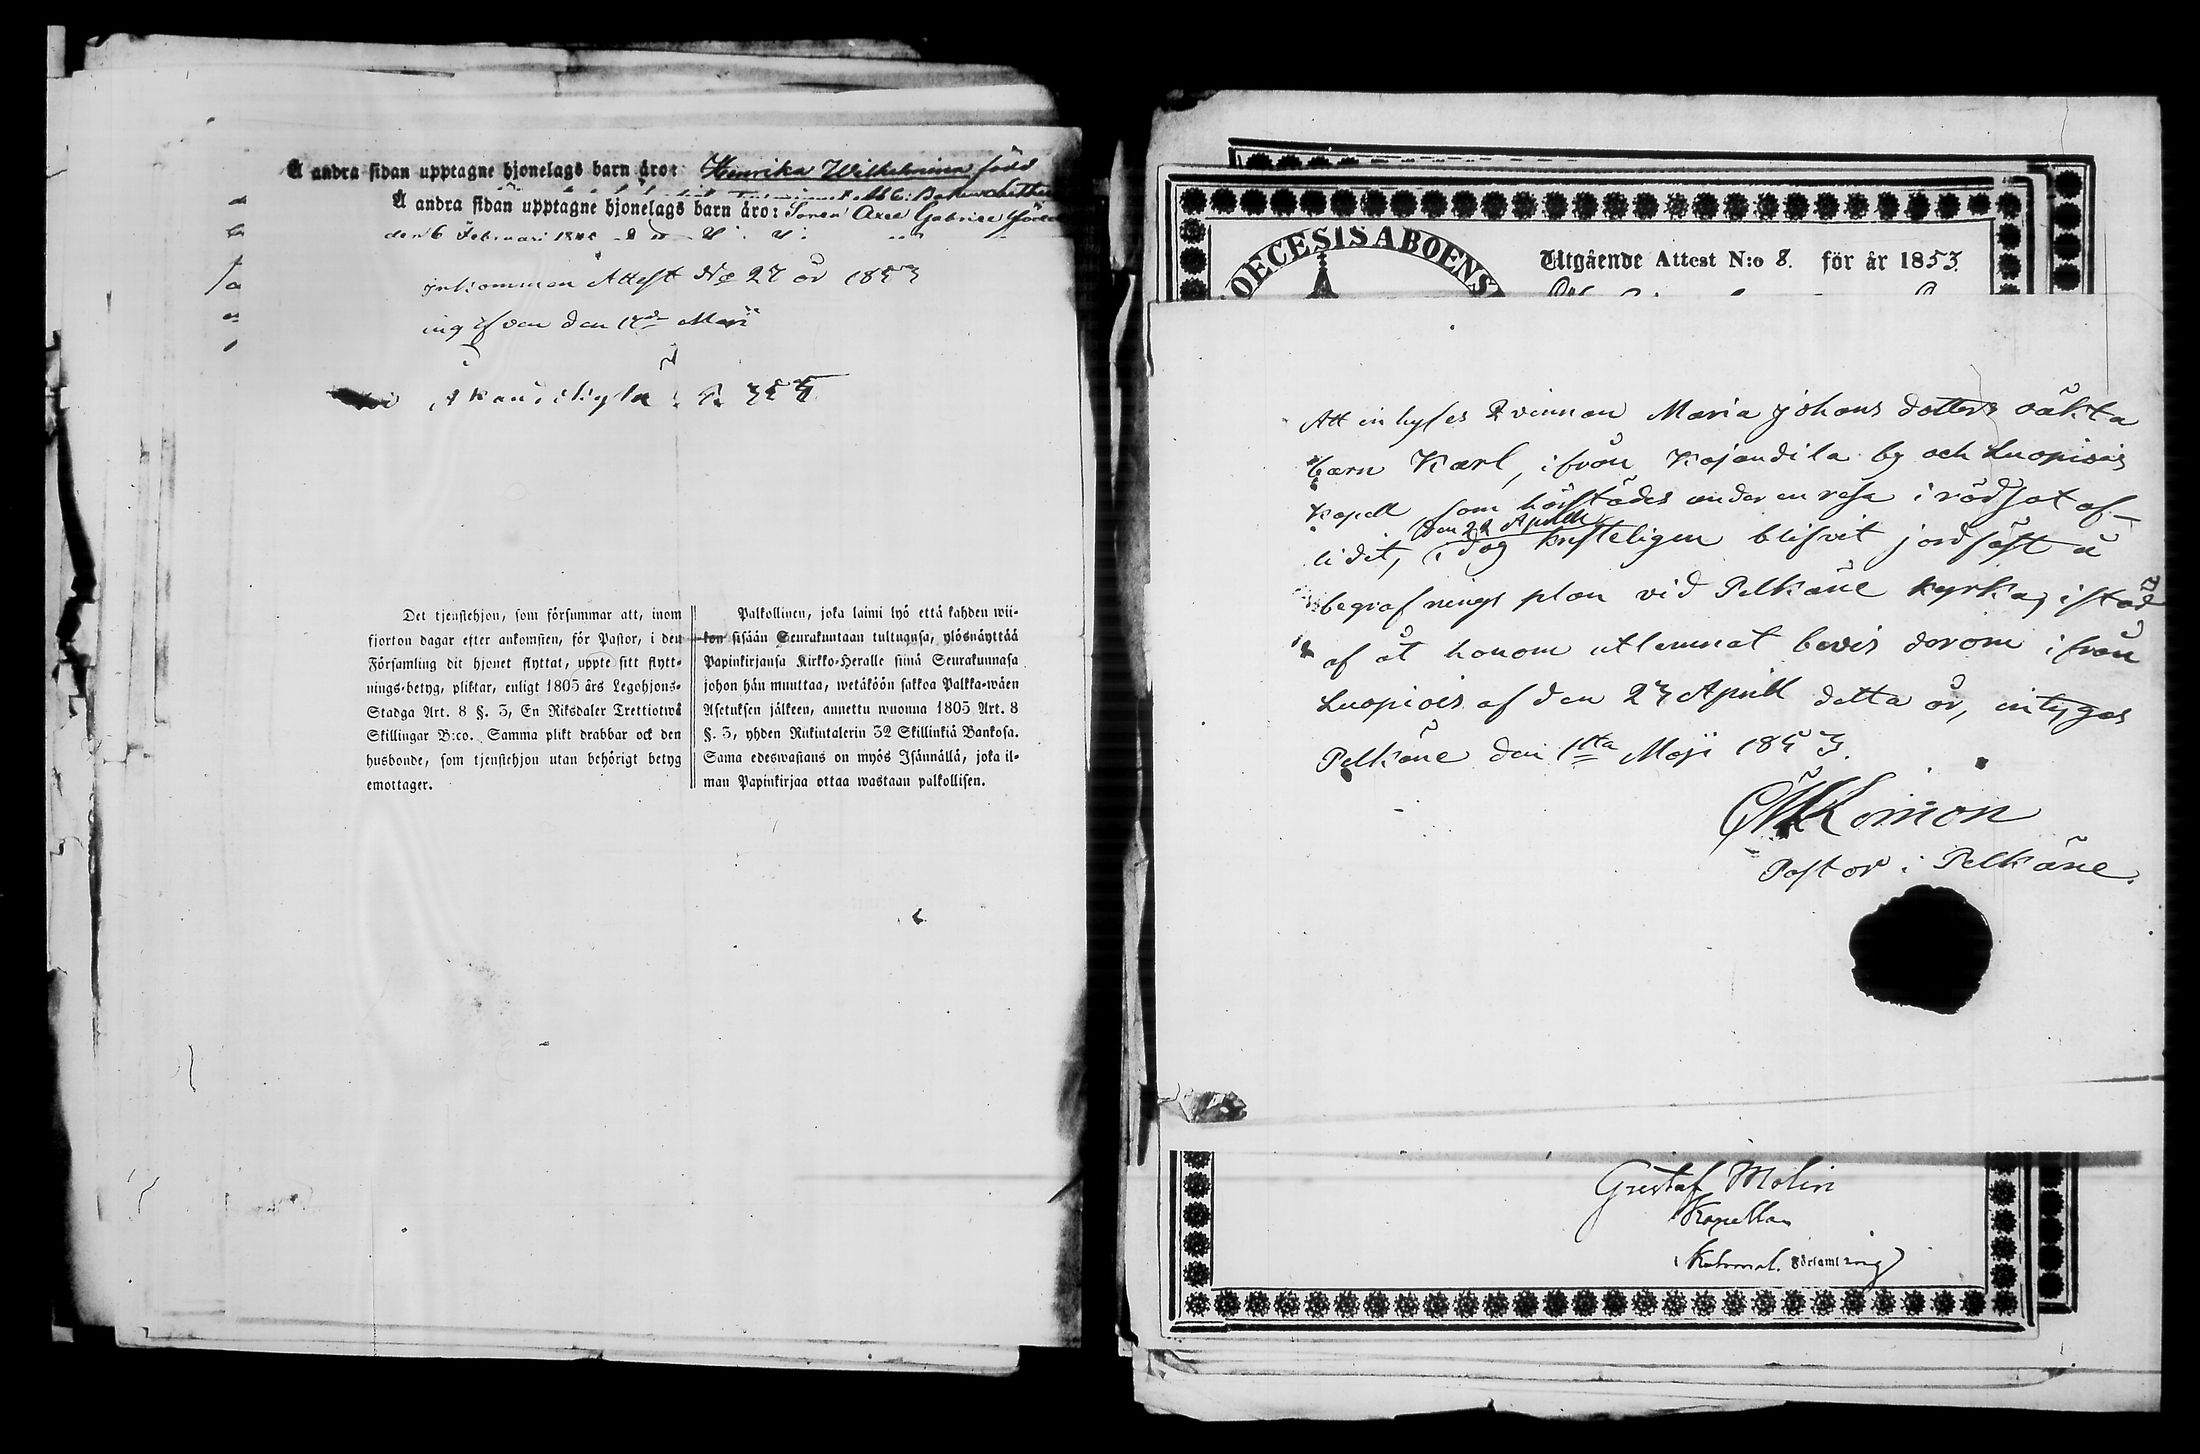 Å andra sidan upptagne hjonelags barn äro: Henrika Wilhelmina född
Å andra sidan upptagne hjonelags barn äro: Sonen Axel Gabriel född
den 6 Februari
Inkommen Attest No 27 år 1853
ingifven den 17de Maji
Det tjenstehjon, som försummar att, inom
fjorton dagar efter ankomsten, för Pastor, i den
Församling dit hjonet flyttat, uppte sitt flytt-
nings-betyg, pliktar, enligt 1805 års Legohjons-
Stadga Art. 8 §. 3, En Riksdaler Trettiotwå
Skillingar B:co. Samma plikt drabbar ock den
husbonde, som tjenstehjon utan behörigt betyg
emottager.
Palkollinen, joka laimi lyö että kahden wii-
kon sisään Seurakuntaan tultugnsa, ylösnäyttää
Papinkirjansa Kirkko-Heralle siinä Seurakunnasa
johon hän muuttaa, wetäköön sakkoa Palkka-wäen
Asetuksen jälkeen, annettu wuonna 1805 Art. 8
§. 3, yhden Riikintalerin 32 Skillinkiä Bankosa.
Sama edeswastans on myös Isännällä, joka il-
man Papinkirjaa ottaa wastaan palkollisen.
OECESIS ABOENS
Utgående Attest N:o 8. för år 1853.
Att inhyses Qvinnan Maria Johans dotters oäkta
barn Karl, ifrån Kajandila by och Luopiois
Kapell som härstädes under en resa i rödsot af-
den 22 Aprill
lidit, i dag kristeligen blifvit jordfäst å
begrafnings plan vid Pelkäne kyrka, i stöd
af åt honom utlemnat bevis derom ifrån
Luopiois af den 27 Aprill detta år, intygas
Pelkäne den 1sta Maji 1853.
Pastor i Pelkäne.
Gustaf Molin
Kapellan
Församling